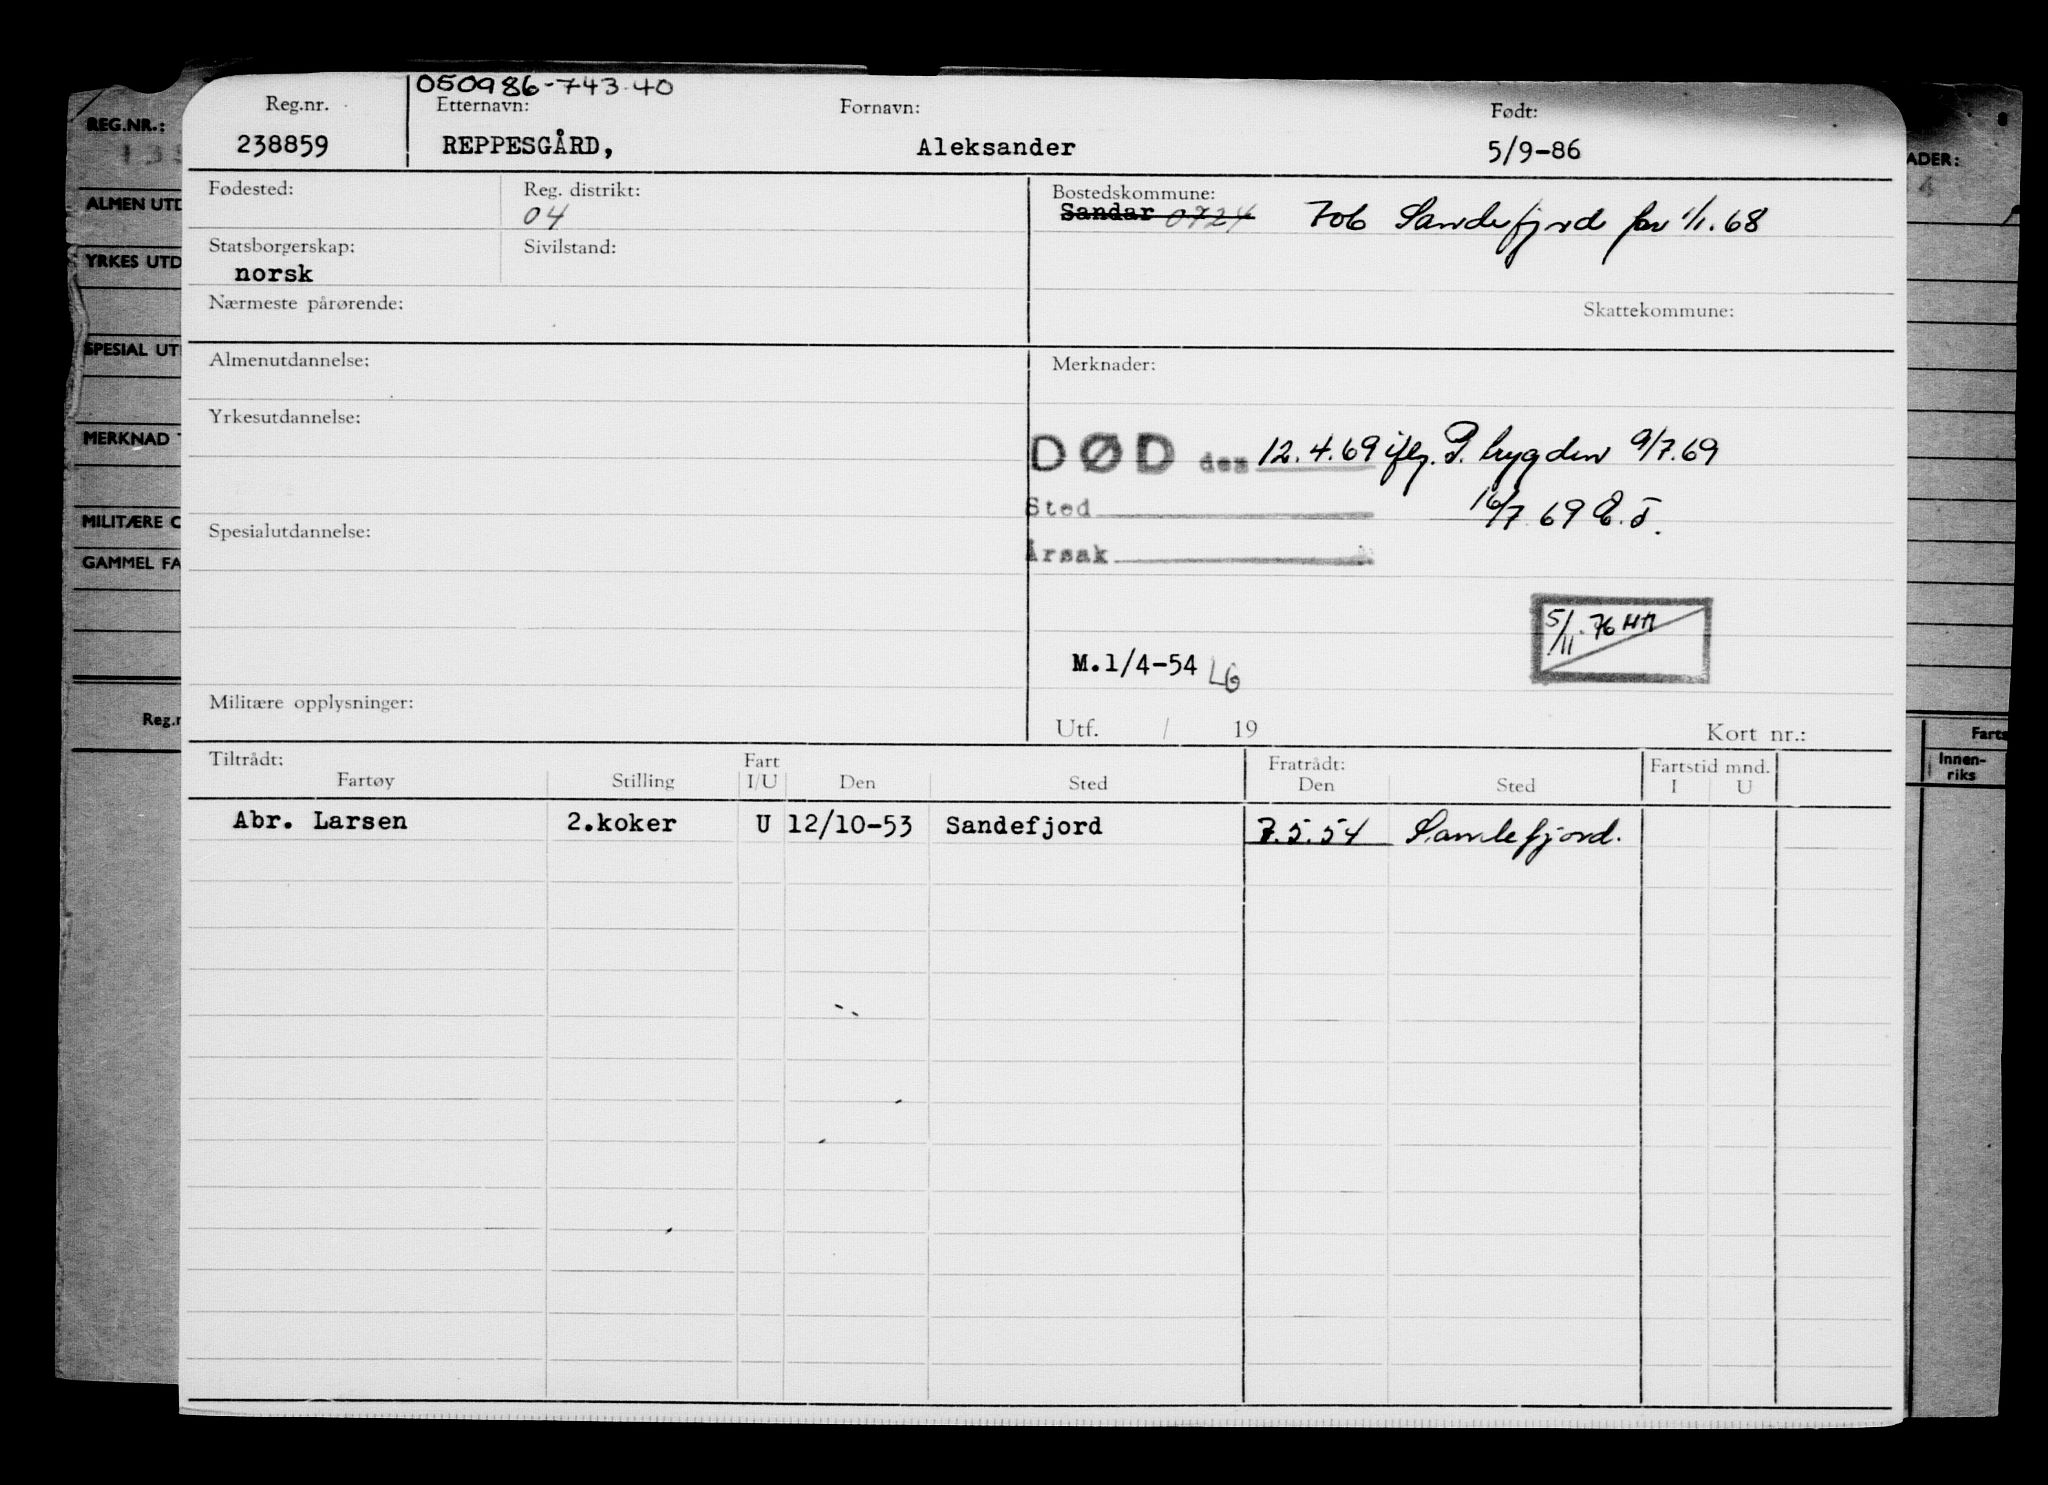 050986-743.40
Reg.nr. Etternavn: Fornavn: Født:
238859 REPPESGÅRD, Aleksander 5/9-86
Fødested: Reg. distrikt: Bostedskommune:
04 Sandar 0724 706 Sandefjord fra 1/1.68
Statsborgerskap: Sivilstand:
norsk
Nærmeste pårørende: Skattekommune:
Almenutdannelse: Merknader:
Yrkesutdannelse:
DØD den 12.4.69 iflg. P. trygden 9/7.69
Sted 16/7 69 E.T.
Spesialutdannelse:
Årsak
5/11.76 HH
M.1/4-54 LG
Militære opplysninger:
Utf. / 19 Kort nr.:
Tiltrådt: Fart Fratrådt: Fartstid mnd.
Fartøy Stilling I/U Den Sted Den Sted I U
Abr. Larsen 2.koker U 12/10-53 Sandefjord 7.5.54 Sandefjord.
REG.NR.:
ALMEN UTD
YRKES UTD
SPESIAL UT
MERKNAD
MILITÆRE O
GAMMEL FA
Reg.n
ADER:
4
Farts
Innen-
riks